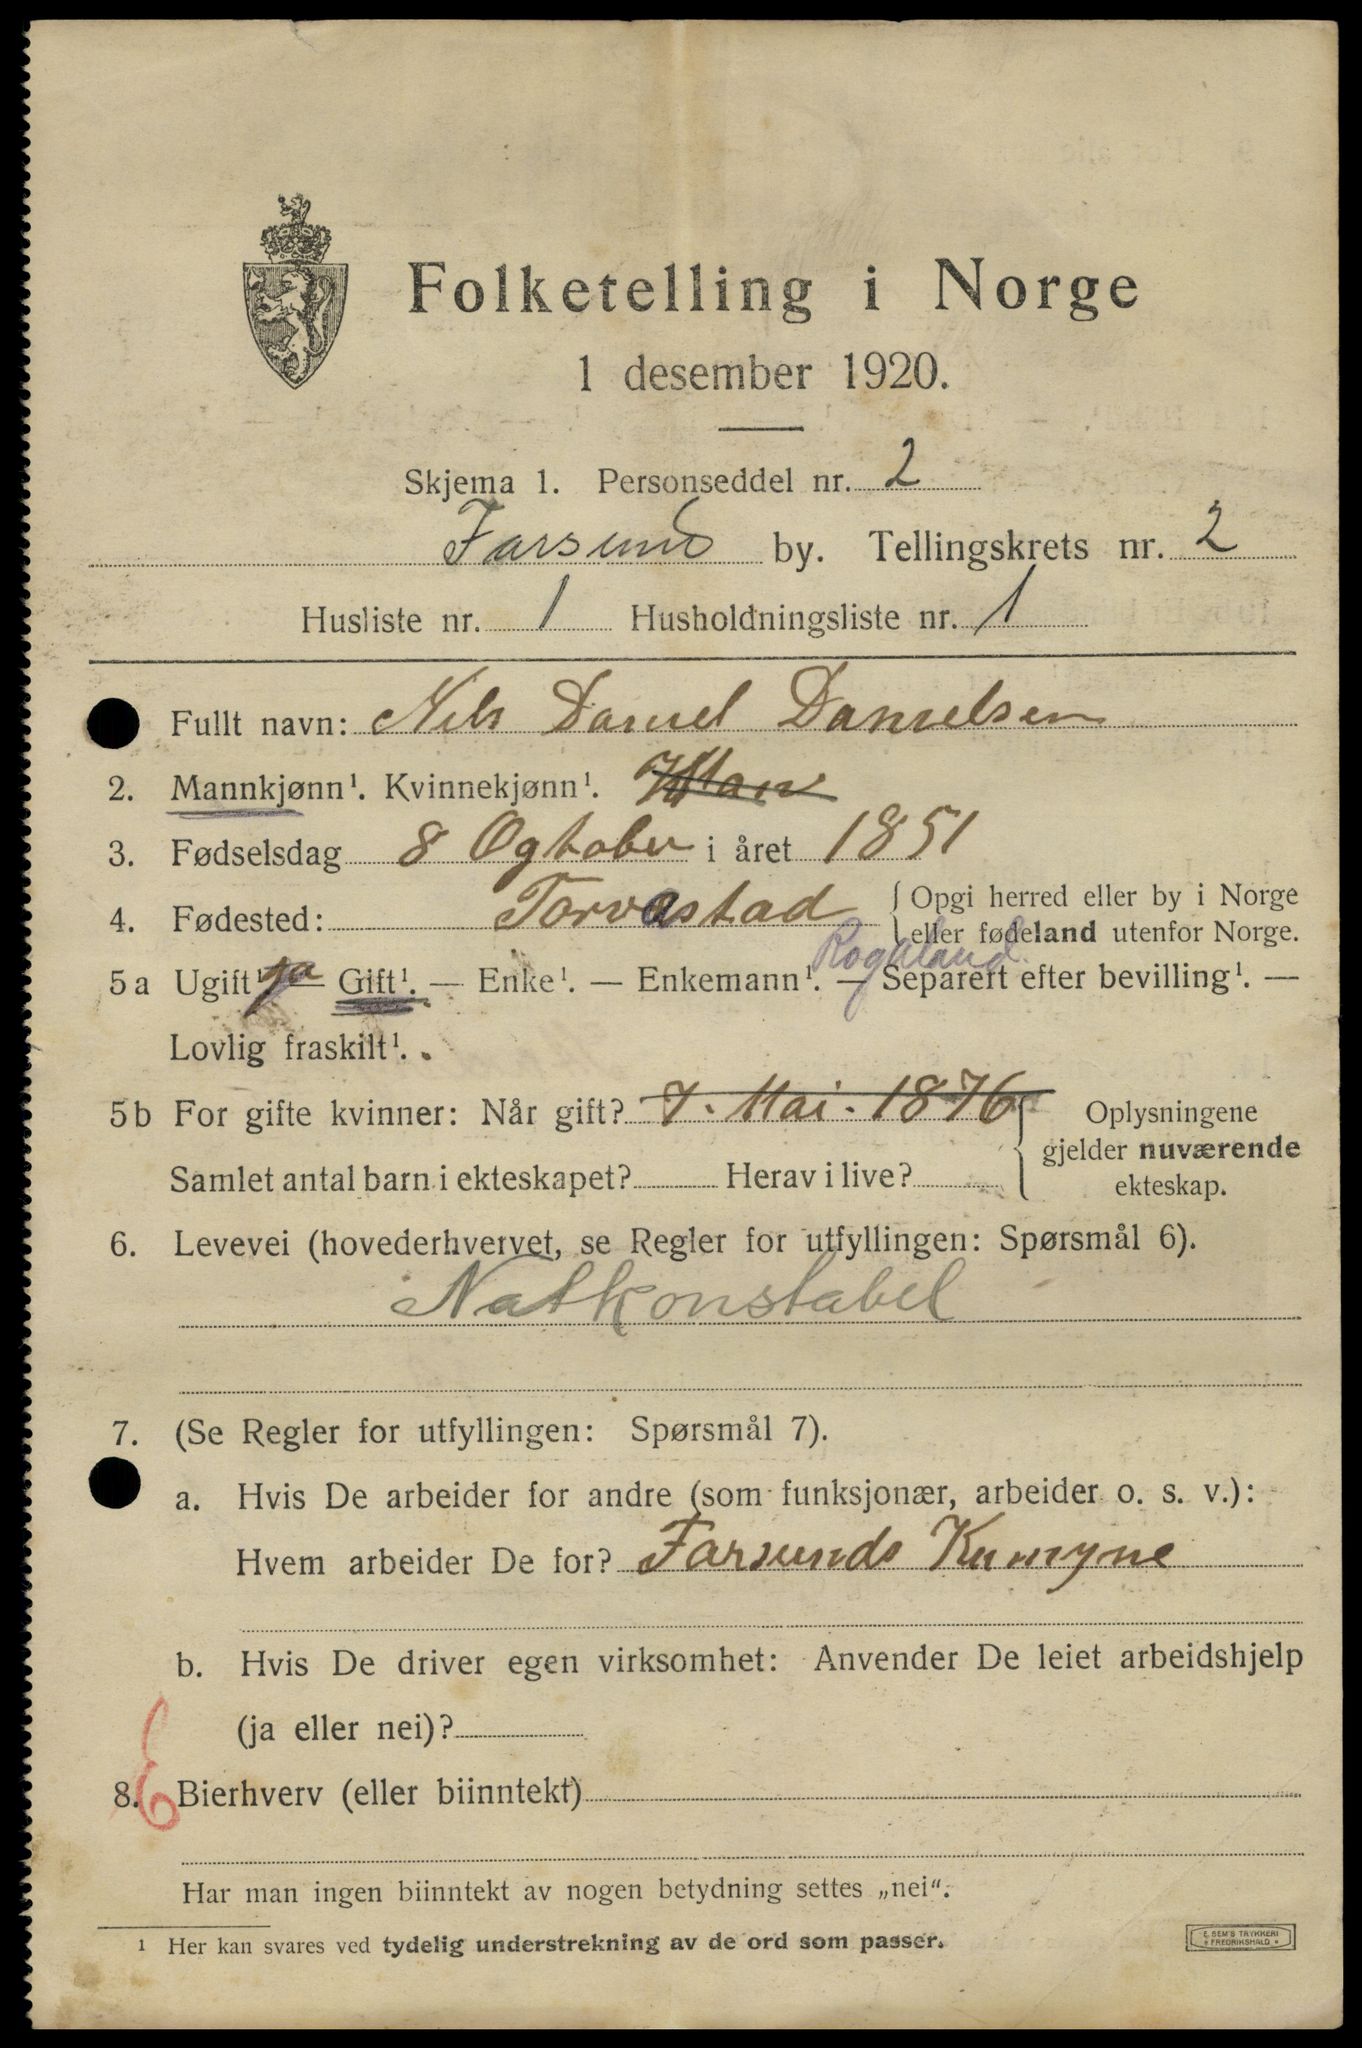 Folketelling i Norge
1 desember 1920.
Skjema 1. Personseddel nr. 2
Farsund by. Tellingskrets nr. 2
Husliste nr. 1 Husholdningsliste nr. 1
Fullt navn: Nils Daniel Danielsen
2. Mannkjønn¹. Kvinnekjønn¹. Man
3. Fødselsdag 8 Ogtober i året 1851
4. Fødested: Torvastad { Opgi herred eller by i Norge
eller fødeland utenfor Norge.
Rogaland.
5 a Ugift¹ ja Gift¹. — Enke¹. — Enkemann¹. — Separert efter bevilling¹. —
Lovlig fraskilt¹.
5 b For gifte kvinner: Når gift? 7. Mai. 1876 { Oplysningene
gjelder nuværende
Samlet antal barn i ekteskapet? Herav i live?
ekteskap.
6. Levevei (hovederhvervet, se Regler for utfyllingen: Spørsmål 6).
Natkonstabel
7. (Se Regler for utfyllingen: Spørsmål 7).
a. Hvis De arbeider for andre (som funksjonær, arbeider o. s. v.):
Hvem arbeider De for? Farsunds Kumyne
b. Hvis De driver egen virksomhet: Anvender De leiet arbeidshjelp
(ja eller nei)?
8. Bierhverv (eller biinntekt)
Har man ingen biinntekt av nogen betydning settes „nei“.
¹ Her kan svares ved tydelig understrekning av de ord som passer.
E. SEM'S TRYKKERI
FREDRIKSHALD